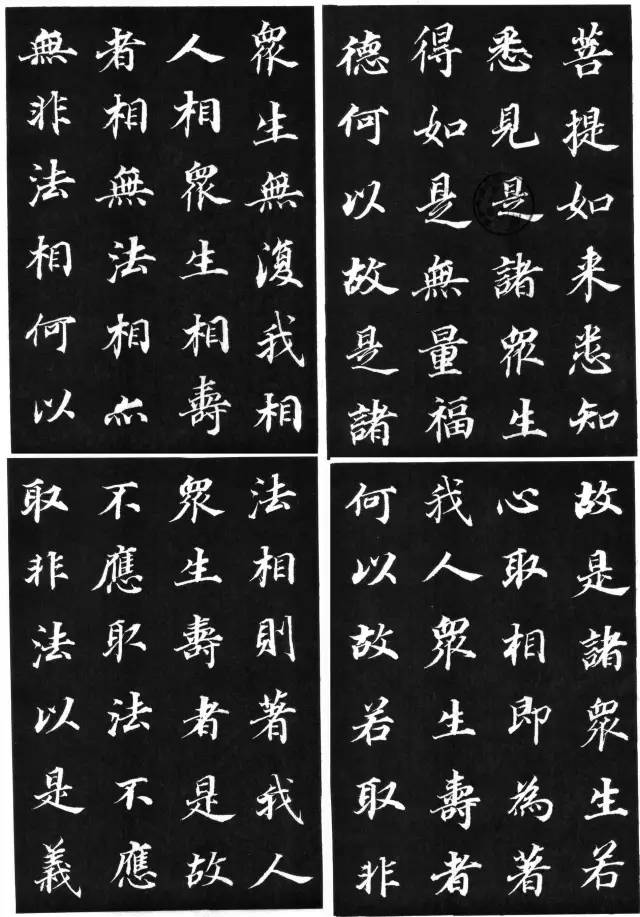 菩提如来悉知
悉見是諸眾生
得如是無量福
德何以故是諸
眾生無復我相
人相眾生相壽
者相無法相亦
無非法相何以
故是諸眾生若
心取相即為著
我人眾生壽者
何以故若取非
法相則著我人
眾生壽者是故
不應取法不應
取非法以是義